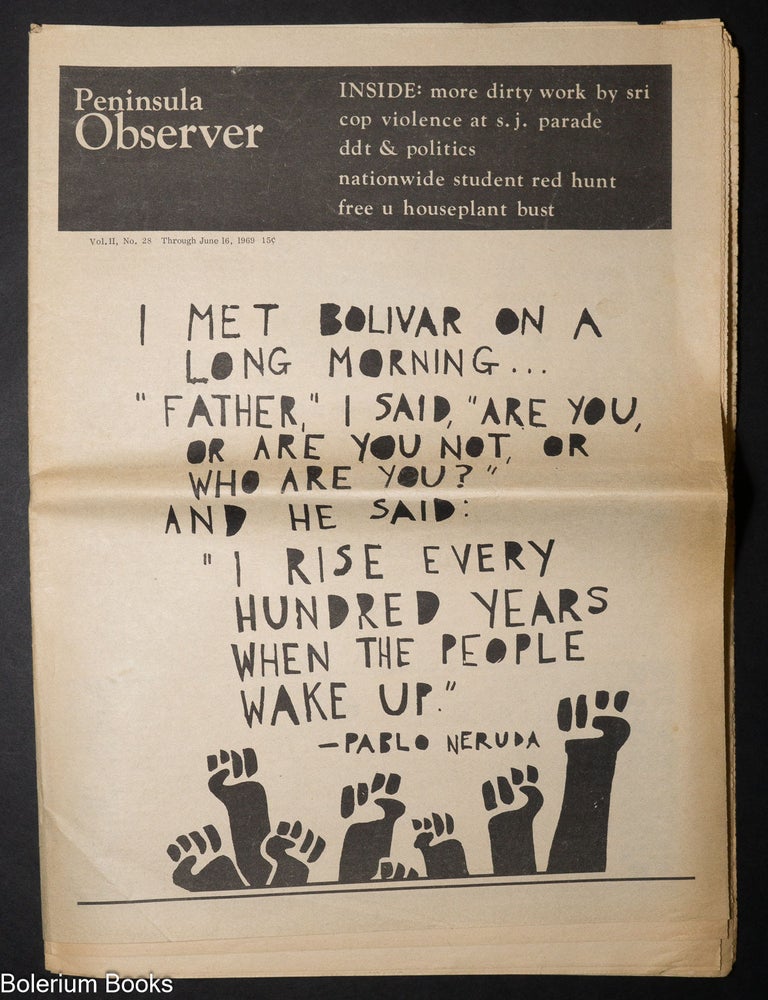 Peninsula
Observer
INSIDE: more dirty work by sri
cop violence at s.j. parade
ddt & politics
nationwide student red hunt
free u houseplant bust
Vol.II, No. 28 Through June 16, 1969 15¢
I MET BOLIVAR ON A
LONG MORNING...
"FATHER," I SAID, "ARE YOU,
OR ARE YOU NOT, OR
WHO ARE YOU?"
AND HE SAID:
"I RISE EVERY
HUNDRED YEARS
WHEN THE PEOPLE
WAKE UP."
—PABLO NERUDA
Bolerium Books